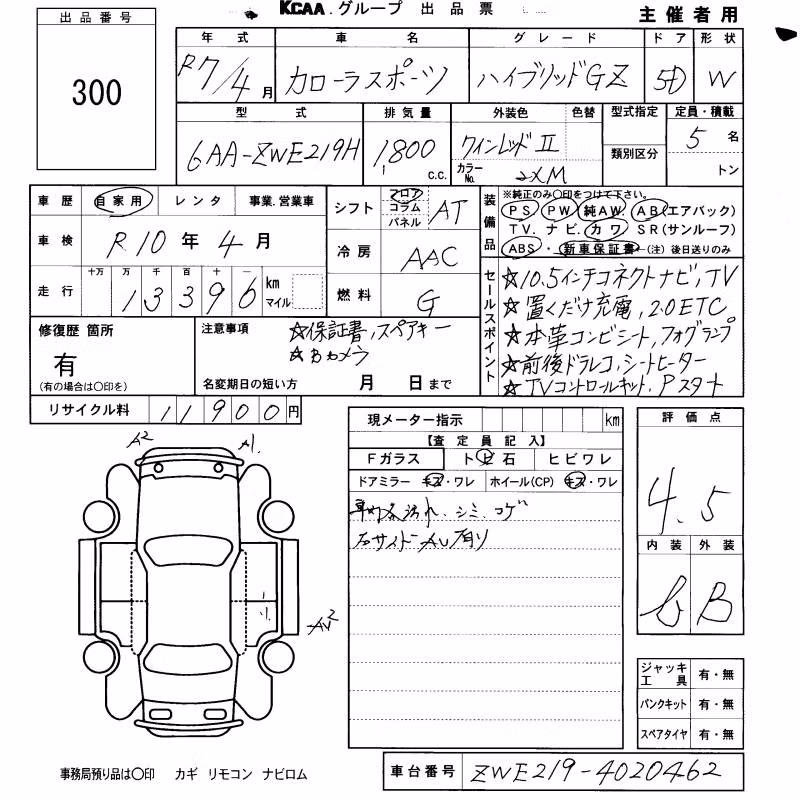 KCAA.グループ 出品票
主催者用
出品番号
300
年式 車名 グレード ドア 形状
R7/4月 カローラスポーツ ハイブリッドGZ 5D W
型式 排気量 外装色 色替 型式指定 定員・積載
6AA-ZWE219H 1800 c.c. ワインレッドⅡ 5名
カラーNo. 2XM 類別区分 トン
車歴 自家用 レンタ 事業.営業車
車検 R10年4月
走行 十万 万 千 百 十 一
13396 km マイル
シフト フロア コラム パネル AT
冷房 AAC
燃料 G
装備品 ※純正のみ○印をつけて下さい。
PS PW 純AW. AB(エアバック)
TV. ナビ. カワ SR(サンルーフ)
ABS ・ 新車保証書 ―(注) 後日送りのみ
セールスポイント
☆10.5インチコネクトナビ,TV
☆置くだけ充電,2.0ETC
☆本革コンビシート,フォグランプ
☆前後ドラレコ,シートヒーター
☆TVコントロールキット,Pスタート
修復歴 箇所
有
(有の場合は○印を)
注意事項 ☆保証書,スペアキー
☆Bカメラ
名変期日の短い方 月 日まで
リサイクル料 11900円
現メーター指示 km
【査定員記入】
Fガラス トビ石 ヒビワレ
ドアミラー キズ・ワレ ホイール(CP) キズ・ワレ
車内汚れ.シミ.コゲ
右サイドAU有り
評価点
4.5
内装 外装
b B
A2 A1
AU2
ジャッキ工具 有・無
パンクキット 有・無
スペアタイヤ 有・無
事務局預り品は○印 カギ リモコン ナビロム
車台番号 ZWE219-4020462